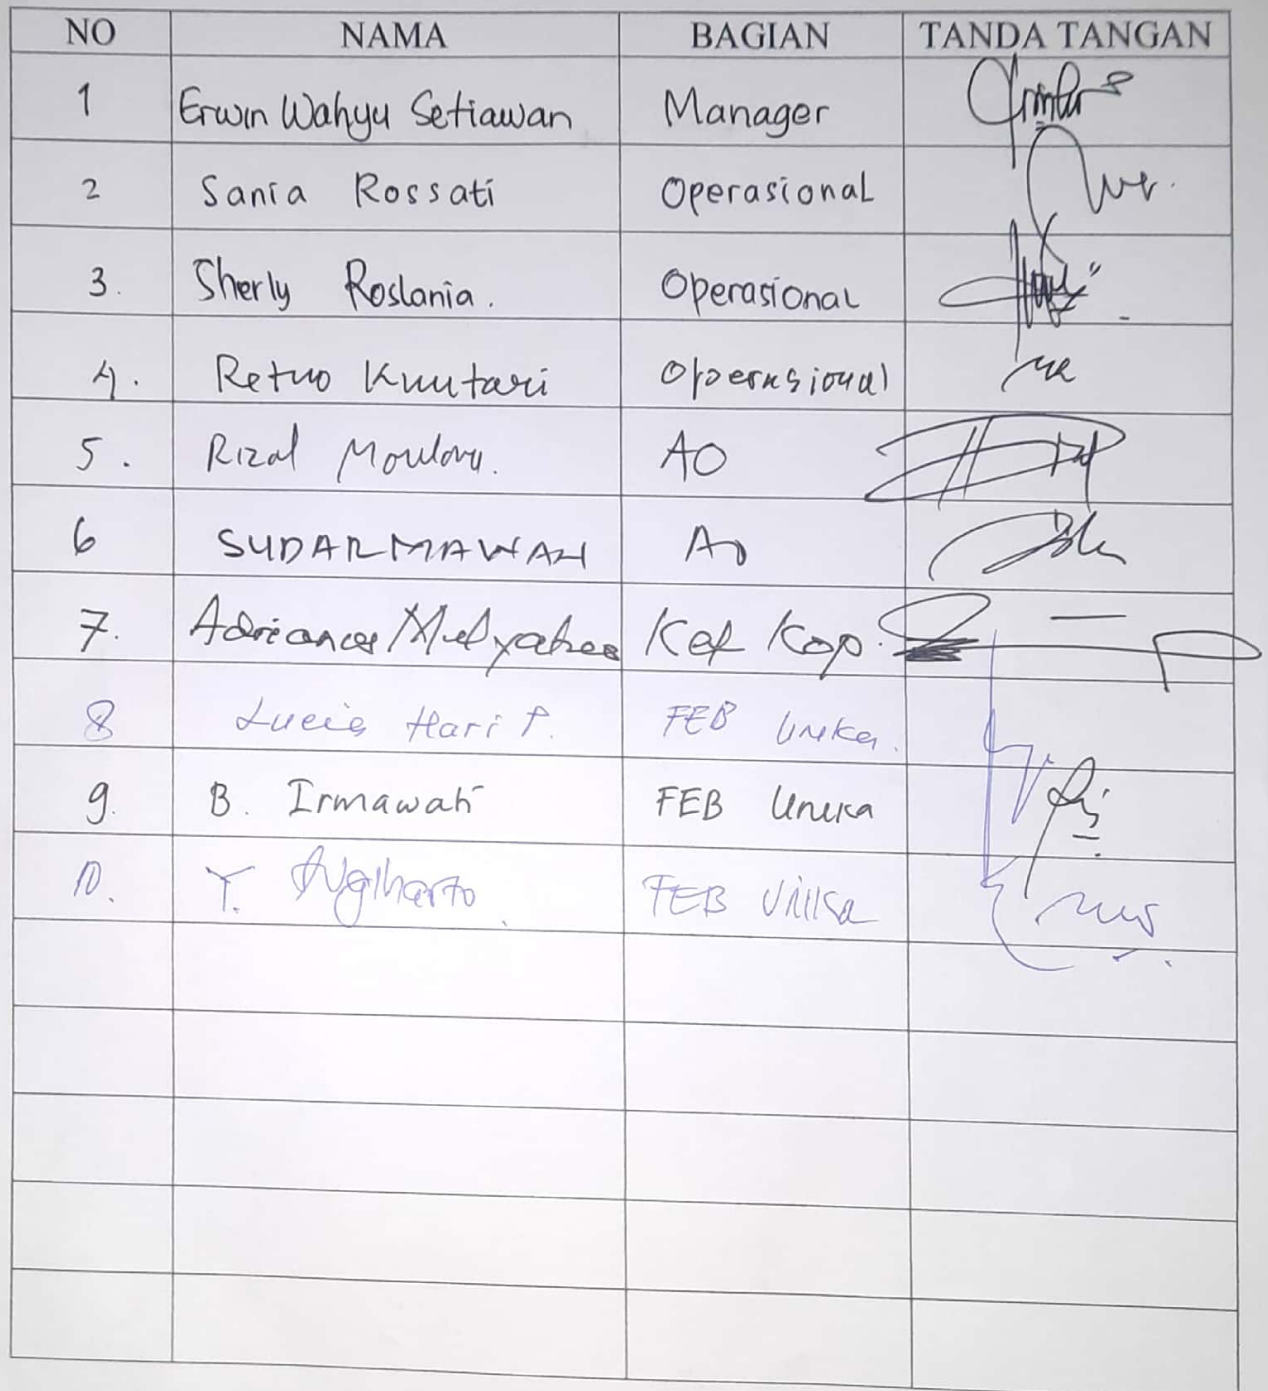 NO NAMA BAGIAN TANDA TANGAN
1 Erwin Wahyu Setiawan Manager
2 Sania Rossati Operasional
3. Sherly Roslania. Operasional
4. Retno Kuntari Operasional
5. Rizal Maulana. AO
6 SUDARMAWAN AO
7. Kop.
8 Lucia Hari P. FEB Unika.
9. B. Irmawati FEB Unika
10. Y. Sugiharto FEB Unika